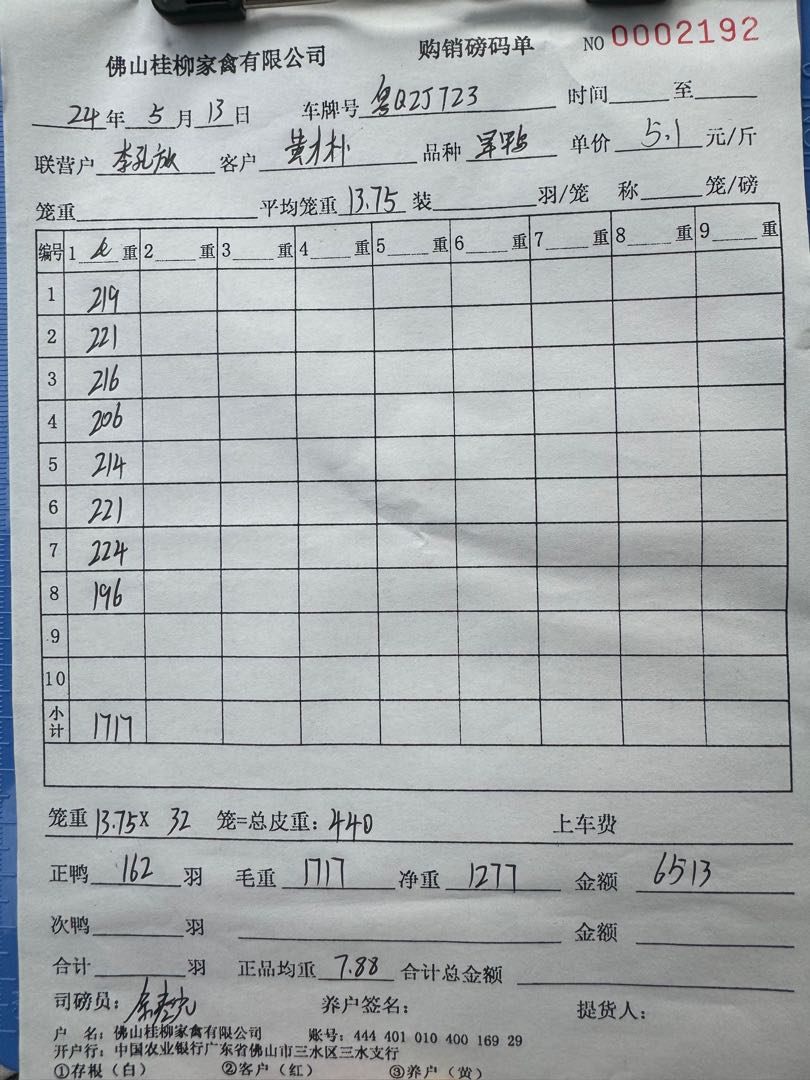 佛山桂柳家禽有限公司 购销磅码单 NO 0002192
24年 5月 13日 车牌号 粤Q2J723 时间 至
联营户 李孔放 客户 黄才朴 品种 单价 5.1 元/斤
笼重 平均笼重 13.75 装 羽/笼 称 笼/磅
编号 1 重 2 重 3 重 4 重 5 重 6 重 7 重 8 重 9 重
1 219
2 221
3 216
4 206
5 214
6 221
7 224
8 196
9
10
小计 1717
笼重 13.75X 32 笼=总皮重: 440 上车费
正鸭 162 羽 毛重 1717 净重 1277 金额 6513
次鸭 羽 金额
合计 羽 正品均重 7.88 合计总金额
司磅员: 养户签名: 提货人:
户 名: 佛山桂柳家禽有限公司 账号: 444 401 010 400 169 29
开户行: 中国农业银行广东省佛山市三水区三水支行
①存根(白) ②客户(红) ③养户(黄)